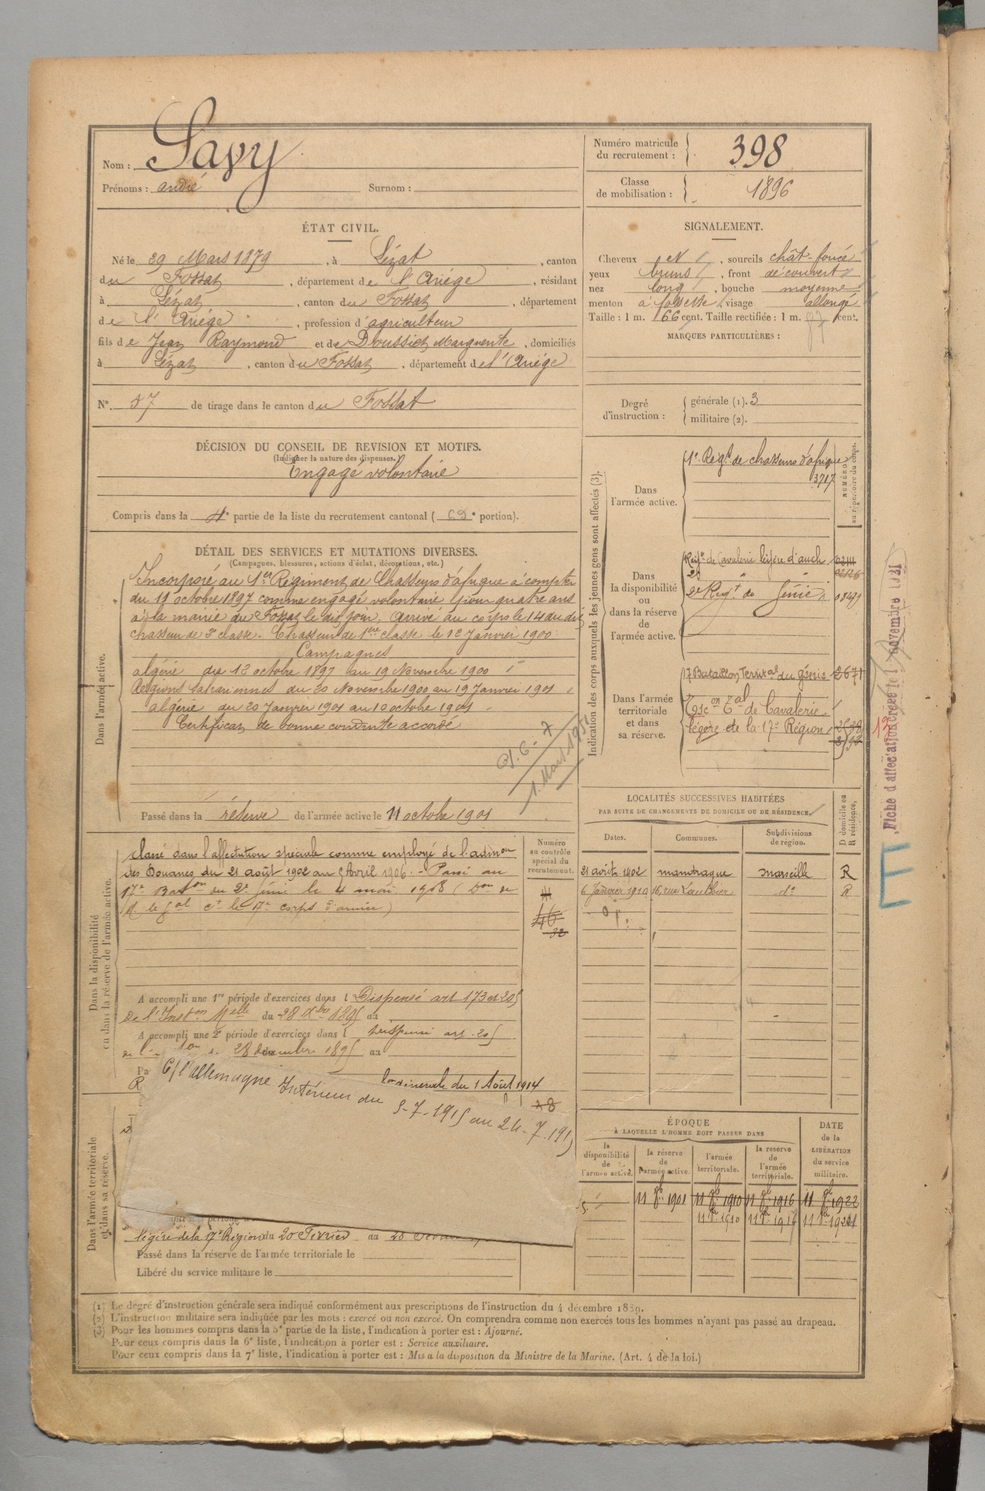 Nom : Savy
Prénoms : andré Surnom :
Numéro matricule du recrutement : 398
Classe de mobilisation : 1896
ÉTAT CIVIL.
Né le 29 Mars 1879, à Lézat, canton
du Fossat, département de l'Ariége, résidant
à Lézat, canton du Fossat, département
de l'Ariége, profession d'agriculteur
fils de Jean Raymond et de Marguerite, domiciliés
à Lézat, canton du Fossat, département de l'Ariége
N° 57 de tirage dans le canton du Fossat
SIGNALEMENT.
Cheveux et, sourcils chât-foncé
yeux bruns, front découvert
nez long, bouche moyenne
menton à fossette, visage allongé
Taille : 1 m. 66 cent. Taille rectifiée : 1 m. cent.
MARQUES PARTICULIÈRES :
Degré d'instruction :
générale (1). 3
militaire (2).
DÉCISION DU CONSEIL DE REVISION ET MOTIFS.
(Indiquer la nature des dispenses.)
Engagé volontaire
Compris dans la 4e partie de la liste du recrutement cantonal ( 69e portion).
DÉTAIL DES SERVICES ET MUTATIONS DIVERSES.
(Campagnes, blessures, actions d'éclat, décorations, etc.)
Dans l'armée active.
Incorporé au 1er Régiment de Chasseurs d'afrique à compter
du 19 octobre 1897 comme engagé volontaire pour quatre ans
à la mairie du Fossat le dit jour. Arrivé au corps le 14 du dit
chasseur de 2e classe. Chasseur de 1ère classe le 12 Janvier 1900
Campagnes
algérie du 12 octobre 1897 au 19 Novembre 1900
Régions sahariennes du 20 Novembre 1900 au 19 Janvier 1901
algérie du 20 Janvier 1901 au 10 octobre 1901
Certificat de bonne conduite accordé
1 Mars 1951
Passé dans la réserve de l'armée active le 11 octobre 1901
Indication des corps auxquels les jeunes gens sont affectés (3).
Dans l'armée active.
1er Regt de chasseurs d'afrique
3717
Dans la disponibilité ou dans la réserve de l'armée active.
Regt de Cavalerie légère d'auch
2e Regt de Génie
Dans l'armée territoriale et dans sa réserve.
17 Bataillon Territal du Génie 2671
Esc on Tal de Cavalerie
légère de la 17e Région
Fiche d'affectation créée le novembre 1921
E
LOCALITÉS SUCCESSIVES HABITÉES
PAR SUITE DE CHANGEMENTS DE DOMICILE OU DE RÉSIDENCE.
Dates. Communes. Subdivisions de région. D domicile ou R résidence.
21 août 1902 mandraque marseille R
6 Janvier 1910 16 rue do R
Dans la disponibilité ou dans la réserve de l'armée active.
Numéro au contrôle spécial du recrutement.
Classé dans l'affectation spéciale comme employé de l'admon
des Douanes du 21 août 1902 au Avril 1906. - Passé au
17e Baton du 2e génie le 4 mai 1908 ( Don de
M. le gal ct le 17e corps d'armée)
A accompli une 1re période d'exercices dans l Dispensé art 173 et 205
de l'Inston Melle du 28 Xbre 1895 au
A accompli une 2e période d'exercices dans l dispensé art. 205
28 décembre 1895 au
générale du 1 Août 1914
C/ l'allemagne Intérieur du 5-7-1915 au 24-7-191
Dans l'armée territoriale et dans sa réserve.
légère de la 17e Région du 20 Février au
Passé dans la réserve de l'armée territoriale le
Libéré du service militaire le
ÉPOQUE
A LAQUELLE L'HOMME DOIT PASSER DANS
la disponibilité de l'armée active.
la réserve de l'armée active.
l'armée territoriale.
la réserve de l'armée territoriale.
DATE de la LIBÉRATION du service militaire.
11 8bre 1901 11 8bre 1910 11 8bre 1916 11 8bre 1922
(1) Le degré d'instruction générale sera indiqué conformément aux prescriptions de l'instruction du 4 décembre 1889.
(2) L'instruction militaire sera indiquée par les mots : exercé ou non exercé. On comprendra comme non exercés tous les hommes n'ayant pas passé au drapeau.
(3) Pour les hommes compris dans la 5e partie de la liste, l'indication à porter est : Ajourné.
Pour ceux compris dans la 6e liste, l'indication à porter est : Service auxiliaire.
Pour ceux compris dans la 7e liste, l'indication à porter est : Mis à la disposition du Ministre de la Marine. (Art. 4 de la loi.)